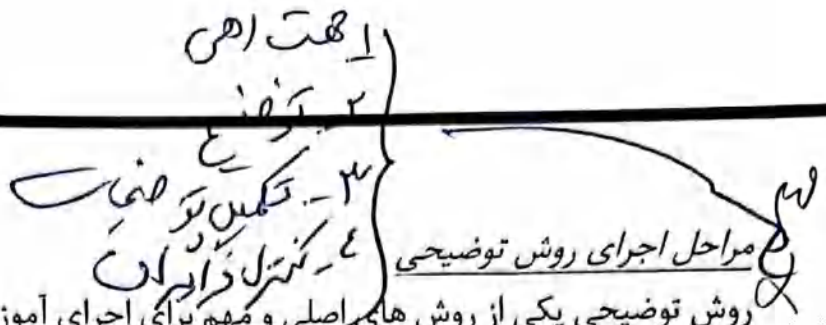 ۱ جهت دهی
۲ـ توضیح
۳ـ تکمیل توضیحات
۴ـ کنترل فراگیران
مراحل اجرای روش توضیحی
روش توضیحی یکی از روش های اصلی و مهم برای اجرای آموز